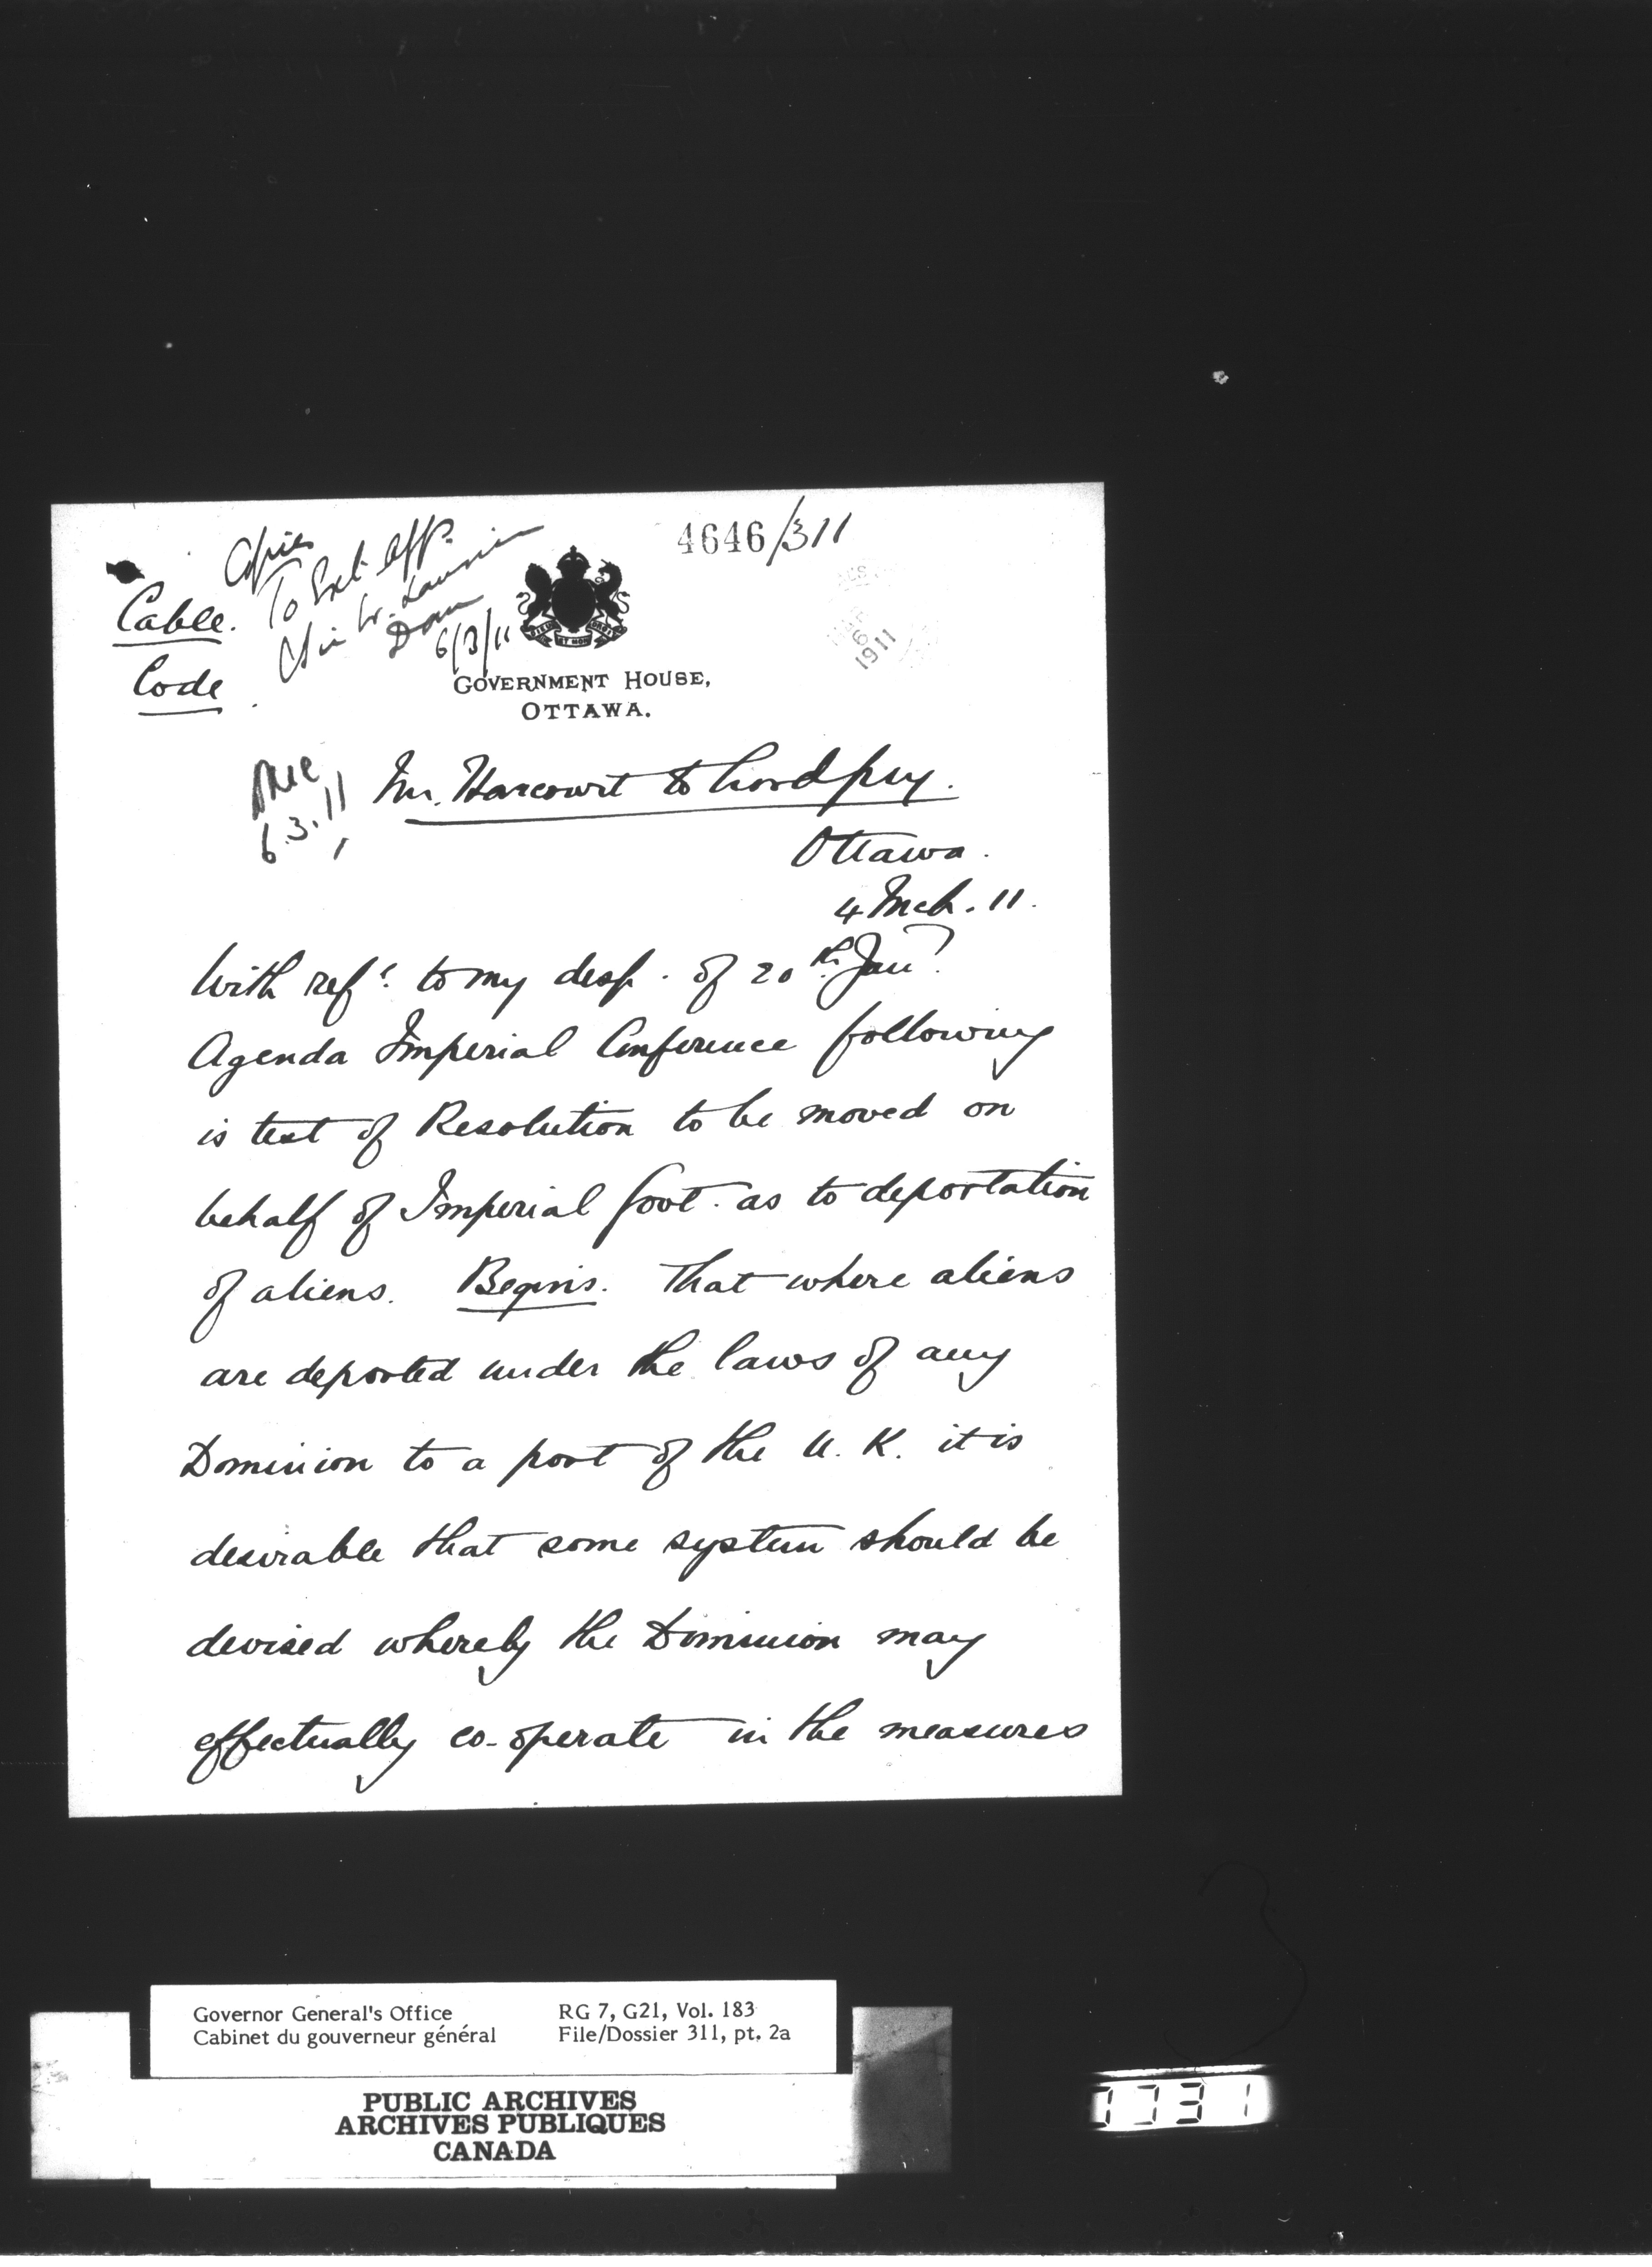 4646/311
Copies
To Ext. Aff.
Sir W. Laurier
Done
6/3/11
Cable.
Code
DIEU ET MON DROIT
MAR
6
1911
GOVERNMENT HOUSE,
OTTAWA.
6.3.11
Mr. Harcourt to Lord Grey.
Ottawa.
4 Mch. 11.
With refce. to my desp. of 20th Jany.
Agenda Imperial Conference following
is text of Resolution to be moved on
behalf of Imperial Govt. as to deportation
of aliens. Begins. That where aliens
are deported under the laws of any
Dominion to a port of the U.K. it is
desirable that some system should be
devised whereby the Dominion may
effectually co-operate in the measures
Governor General's Office
Cabinet du gouverneur général
RG 7, G21, Vol. 183
File/Dossier 311, pt. 2a
PUBLIC ARCHIVES
ARCHIVES PUBLIQUES
CANADA